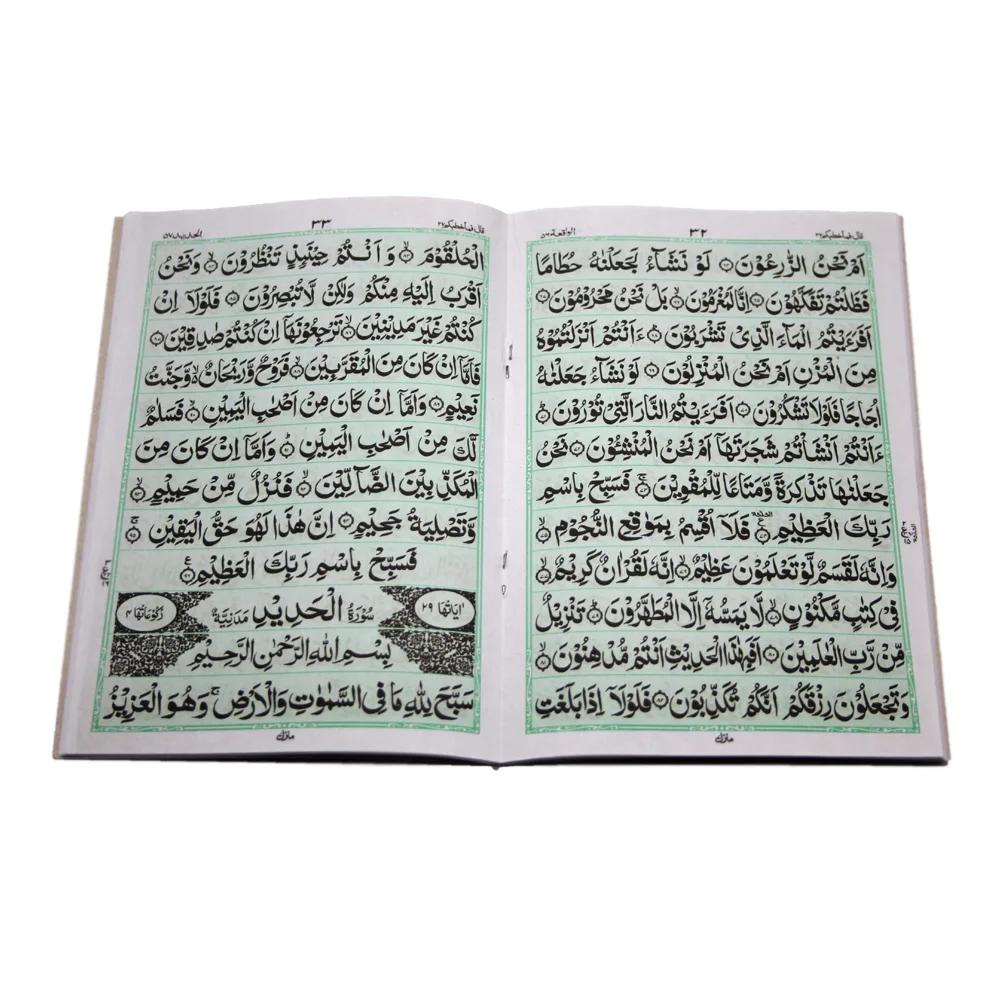 قال فما خطبكم ٢٧ ٣٢ الواقعة ٥٦
اَمْ نَحْنُ الزّٰرِعُوْنَ ۝ لَوْ نَشَآءُ لَجَعَلْنٰهُ حُطَامًا
فَظَلْتُمْ تَفَكَّهُوْنَ ۝ اِنَّا لَمُغْرَمُوْنَ ۝ بَلْ نَحْنُ مَحْرُوْمُوْنَ ۝
اَفَرَءَيْتُمُ الْمَآءَ الَّذِىْ تَشْرَبُوْنَ ۝ ءَاَنْتُمْ اَنْزَلْتُمُوْهُ
مِنَ الْمُزْنِ اَمْ نَحْنُ الْمُنْزِلُوْنَ ۝ لَوْ نَشَآءُ جَعَلْنٰهُ
اُجَاجًا فَلَوْلَا تَشْكُرُوْنَ ۝ اَفَرَءَيْتُمُ النَّارَ الَّتِىْ تُوْرُوْنَ ۝
ءَاَنْتُمْ اَنْشَاْتُمْ شَجَرَتَهَآ اَمْ نَحْنُ الْمُنْشِـُٔوْنَ ۝ نَحْنُ
جَعَلْنٰهَا تَذْكِرَةً وَّمَتَاعًا لِّلْمُقْوِيْنَ ۝ فَسَبِّحْ بِاسْمِ
رَبِّكَ الْعَظِيْمِ ۝ فَلَآ اُقْسِمُ بِمَوٰقِعِ النُّجُوْمِ ۝
وَاِنَّهٗ لَقَسَمٌ لَّوْ تَعْلَمُوْنَ عَظِيْمٌ ۝ اِنَّهٗ لَقُرْاٰنٌ كَرِيْمٌ ۝
فِىْ كِتٰبٍ مَّكْنُوْنٍ ۝ لَّا يَمَسُّهٗٓ اِلَّا الْمُطَهَّرُوْنَ ۝ تَنْزِيْلٌ
مِّنْ رَّبِّ الْعٰلَمِيْنَ ۝ اَفَبِهٰذَا الْحَدِيْثِ اَنْتُمْ مُّدْهِنُوْنَ ۝
وَتَجْعَلُوْنَ رِزْقَكُمْ اَنَّكُمْ تُكَذِّبُوْنَ ۝ فَلَوْلَآ اِذَا بَلَغَتِ
منزل
قال فما خطبكم ٢٧ ٣٣ الحديد ٥٧
الْحُلْقُوْمَ ۝ وَاَنْتُمْ حِيْنَئِذٍ تَنْظُرُوْنَ ۝ وَنَحْنُ
اَقْرَبُ اِلَيْهِ مِنْكُمْ وَلٰكِنْ لَّا تُبْصِرُوْنَ ۝ فَلَوْلَآ اِنْ
كُنْتُمْ غَيْرَ مَدِيْنِيْنَ ۝ تَرْجِعُوْنَهَآ اِنْ كُنْتُمْ صٰدِقِيْنَ ۝
فَاَمَّآ اِنْ كَانَ مِنَ الْمُقَرَّبِيْنَ ۝ فَرَوْحٌ وَّرَيْحَانٌ ۙ وَّجَنَّتُ
نَعِيْمٍ ۝ وَاَمَّآ اِنْ كَانَ مِنْ اَصْحٰبِ الْيَمِيْنِ ۝ فَسَلٰمٌ
لَّكَ مِنْ اَصْحٰبِ الْيَمِيْنِ ۝ وَاَمَّآ اِنْ كَانَ مِنَ
الْمُكَذِّبِيْنَ الضَّآلِّيْنَ ۝ فَنُزُلٌ مِّنْ حَمِيْمٍ ۝
وَّتَصْلِيَةُ جَحِيْمٍ ۝ اِنَّ هٰذَا لَهُوَ حَقُّ الْيَقِيْنِ ۝
فَسَبِّحْ بِاسْمِ رَبِّكَ الْعَظِيْمِ ۝
اٰيَاتُهَا ٢٩ سُوْرَةُ الْحَدِيْدِ مَدَنِيَّةٌ رُكُوْعَاتُهَا ٤
بِسْمِ اللّٰهِ الرَّحْمٰنِ الرَّحِيْمِ
سَبَّحَ لِلّٰهِ مَا فِى السَّمٰوٰتِ وَالْاَرْضِ ۚ وَهُوَ الْعَزِيْزُ
منزل